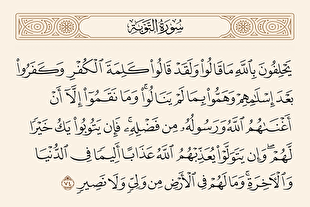 سُورَةُ التَّوْبَةِ
يَحْلِفُونَ بِٱللَّهِ مَا قَالُوا۟ وَلَقَدْ قَالُوا۟ كَلِمَةَ ٱلْكُفْرِ وَكَفَرُوا۟
بَعْدَ إِسْلَـٰمِهِمْ وَهَمُّوا۟ بِمَا لَمْ يَنَالُوا۟ ۚ وَمَا نَقَمُوٓا۟ إِلَّآ أَنْ
أَغْنَىٰهُمُ ٱللَّهُ وَرَسُولُهُۥ مِن فَضْلِهِۦ ۚ فَإِن يَتُوبُوا۟ يَكُ خَيْرًا
لَّهُمْ ۖ وَإِن يَتَوَلَّوْا۟ يُعَذِّبْهُمُ ٱللَّهُ عَذَابًا أَلِيمًا فِى ٱلدُّنْيَا
وَٱلْـَٔاخِرَةِ ۚ وَمَا لَهُمْ فِى ٱلْأَرْضِ مِن وَلِىٍّ وَلَا نَصِيرٍ ٧٤